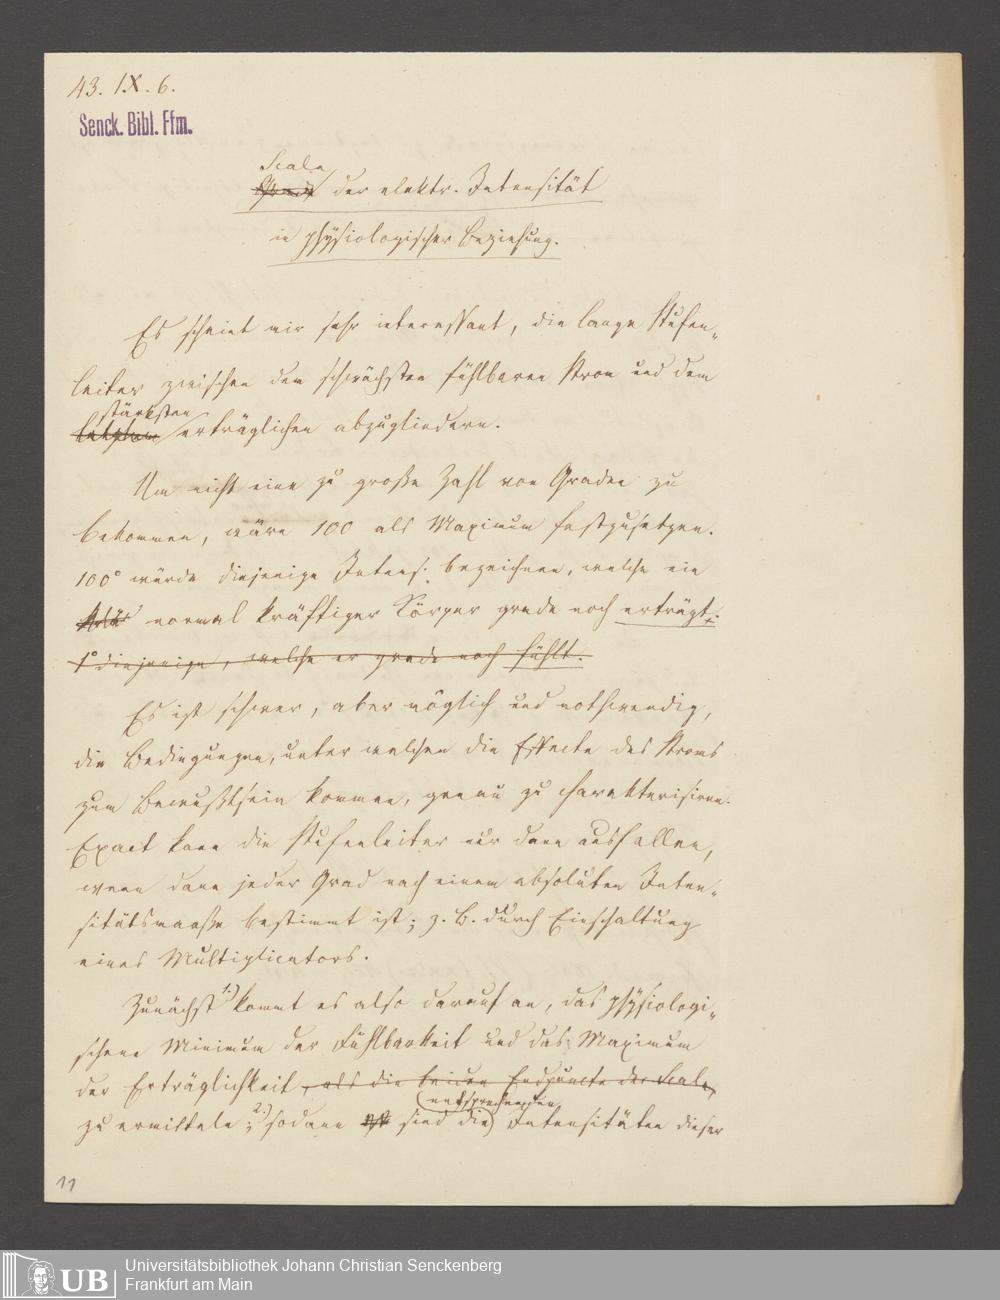 43. IX. 6.
Senck. Bibl. Ffm.
Scala
der elektr. Intensität
in physiologischer Beziehung.
Es scheint mir sehr interessant, die lange Stufen-
leiter zwischen dem schwächsten fühlbaren Strom und dem
stärksten
letzten erträglichen abzugliedern.
Um nicht eine zu große Zahl von Graden zu
bekommen, wäre 100 als Maximum festzusetzen.
100° würde diejenige Intens. bezeichnen, welche ein
normal kräftiger Körper grade noch erträgt.
1° diejenige, welche er grade noch fühlt.
Es ist schwer, aber möglich und nothwendig,
die Bedingungen, unter welchen die Effecte des Stroms
zum Bewußtsein kommen, genau zu charakterisiren.
Exact kann die Stufenleiter nur dann ausfallen,
wenn dann jeder Grad nach einem absoluten Inten-
sitätsmaaße bestimmt ist; z. B. durch Einschaltung
eines Multiplicators.
Zunächst 1.) kommt es also darauf an, das physiologi-
schene Minimum der Fühlbarkeit und das Maximum
der Erträglichkeit, als die beiden Endpuncte der Scala,
entsprechenden
zu ermitteln; 2.) sodann ist sind die Intensitäten dieser
11
Universitätsbibliothek Johann Christian Senckenberg
Frankfurt am Main
UB